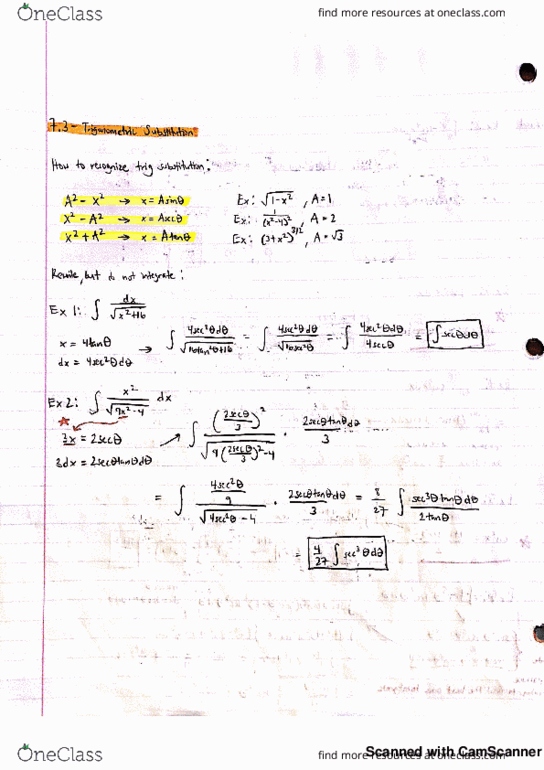 OneClass
find more resources at oneclass.com
7.3 - Trigonometric Substitution:
How to recognize trig substitution:
A² - x² → x = Asinθ Ex: √1-x² , A=1
x² - A² → x = Asecθ Ex: 1/(x²-4)² , A = 2
x² + A² → x = Atanθ Ex: (3+x²)^3/2 , A = √3
Rewrite, but do not integrate:
Ex 1: ∫ dx/√x²+16
x = 4tanθ → ∫ 4sec²θdθ/√16tan²θ+16 = ∫ 4sec²θdθ/√16sec²θ = ∫ 4sec²θdθ/4secθ = ∫secθdθ
dx = 4sec²θdθ
Ex 2: ∫ x²/√9x²-4 dx
3x = 2secθ → ∫ (2secθ/3)²/√9(2secθ/3)²-4 · 2secθtanθdθ/3
3dx = 2secθtanθdθ
= ∫ 4sec²θ/9/√4sec²θ-4 · 2secθtanθdθ/3 = 8/27 ∫ sec³θtanθdθ/2tanθ
= 4/27 ∫ sec³θdθ
OneClass
find more resources at oneclass.com
Scanned with CamScanner